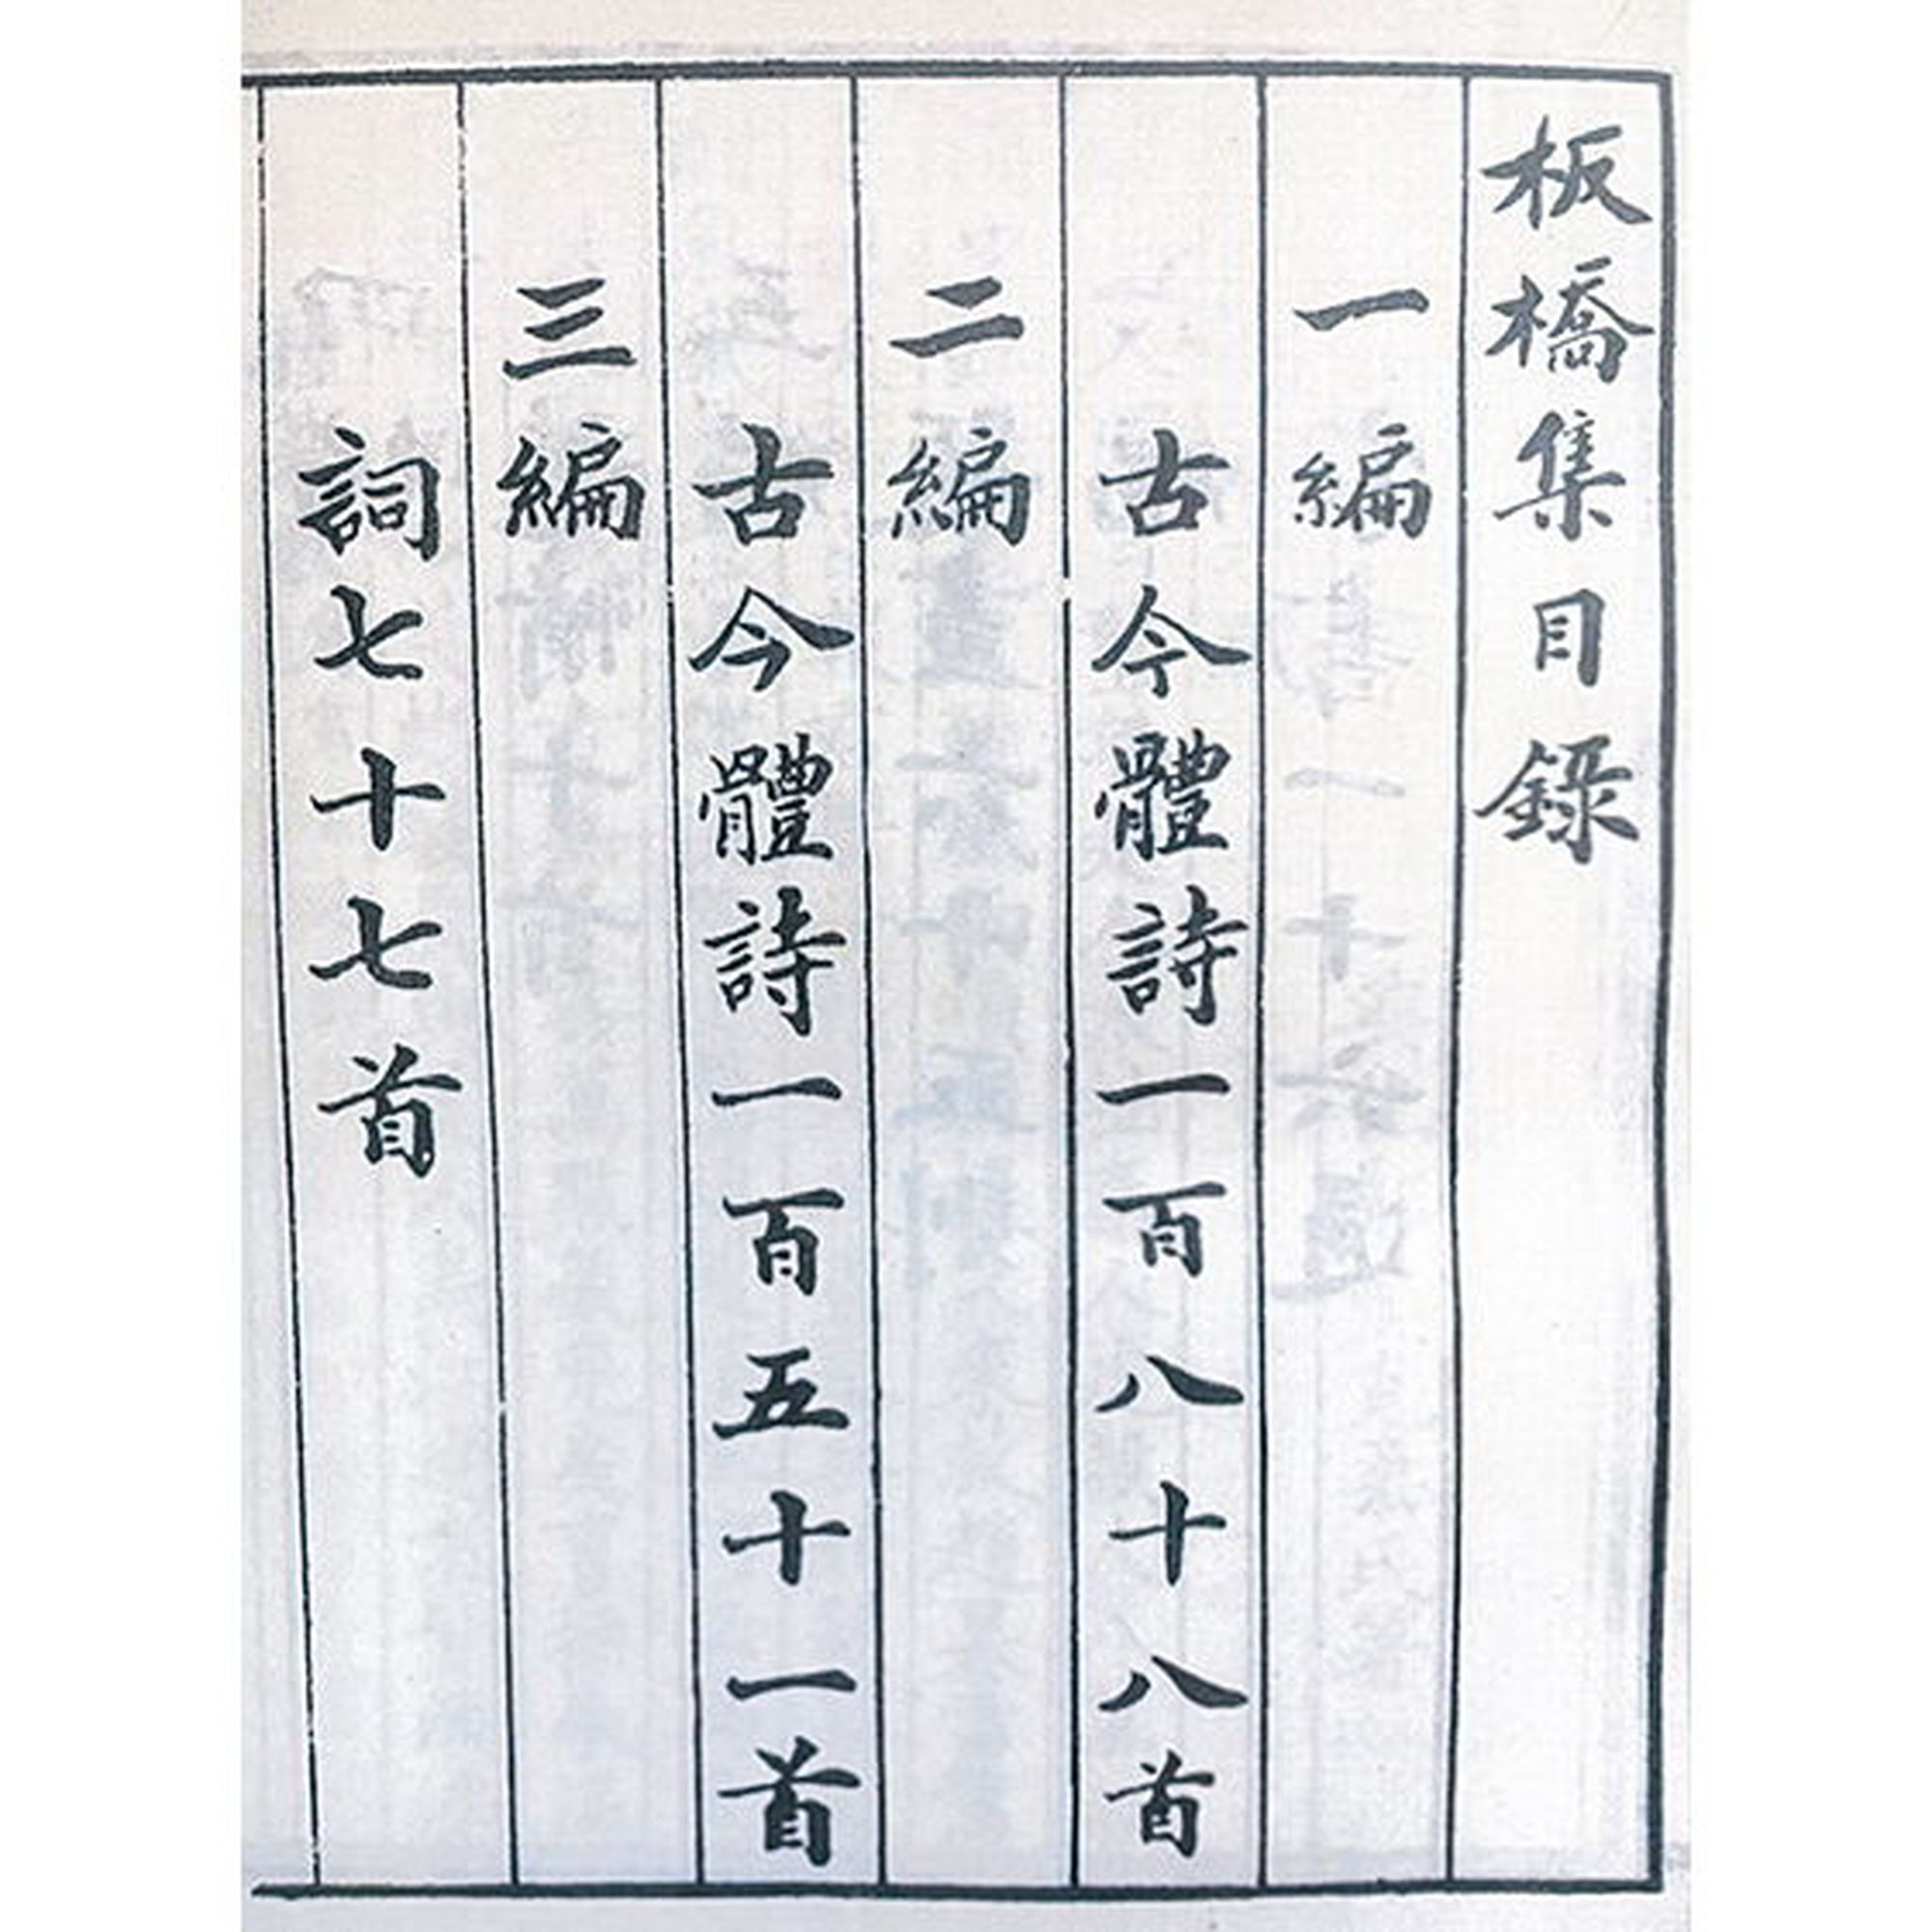 板橋集目録
一編
古今體詩一百八十八首
二編
古今體詩一百五十一首
三編
詞七十七首